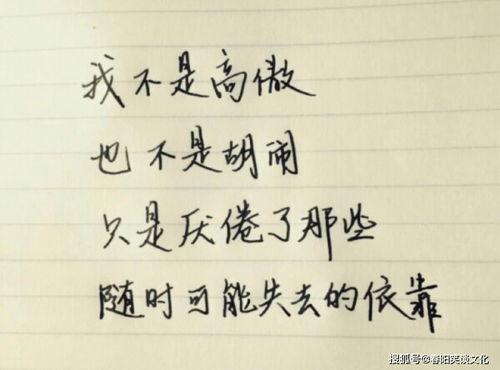 我不是高傲
也不是胡闹
只是厌倦了那些
随时可能失去的依靠
搜狐号@春阳笑谈文化